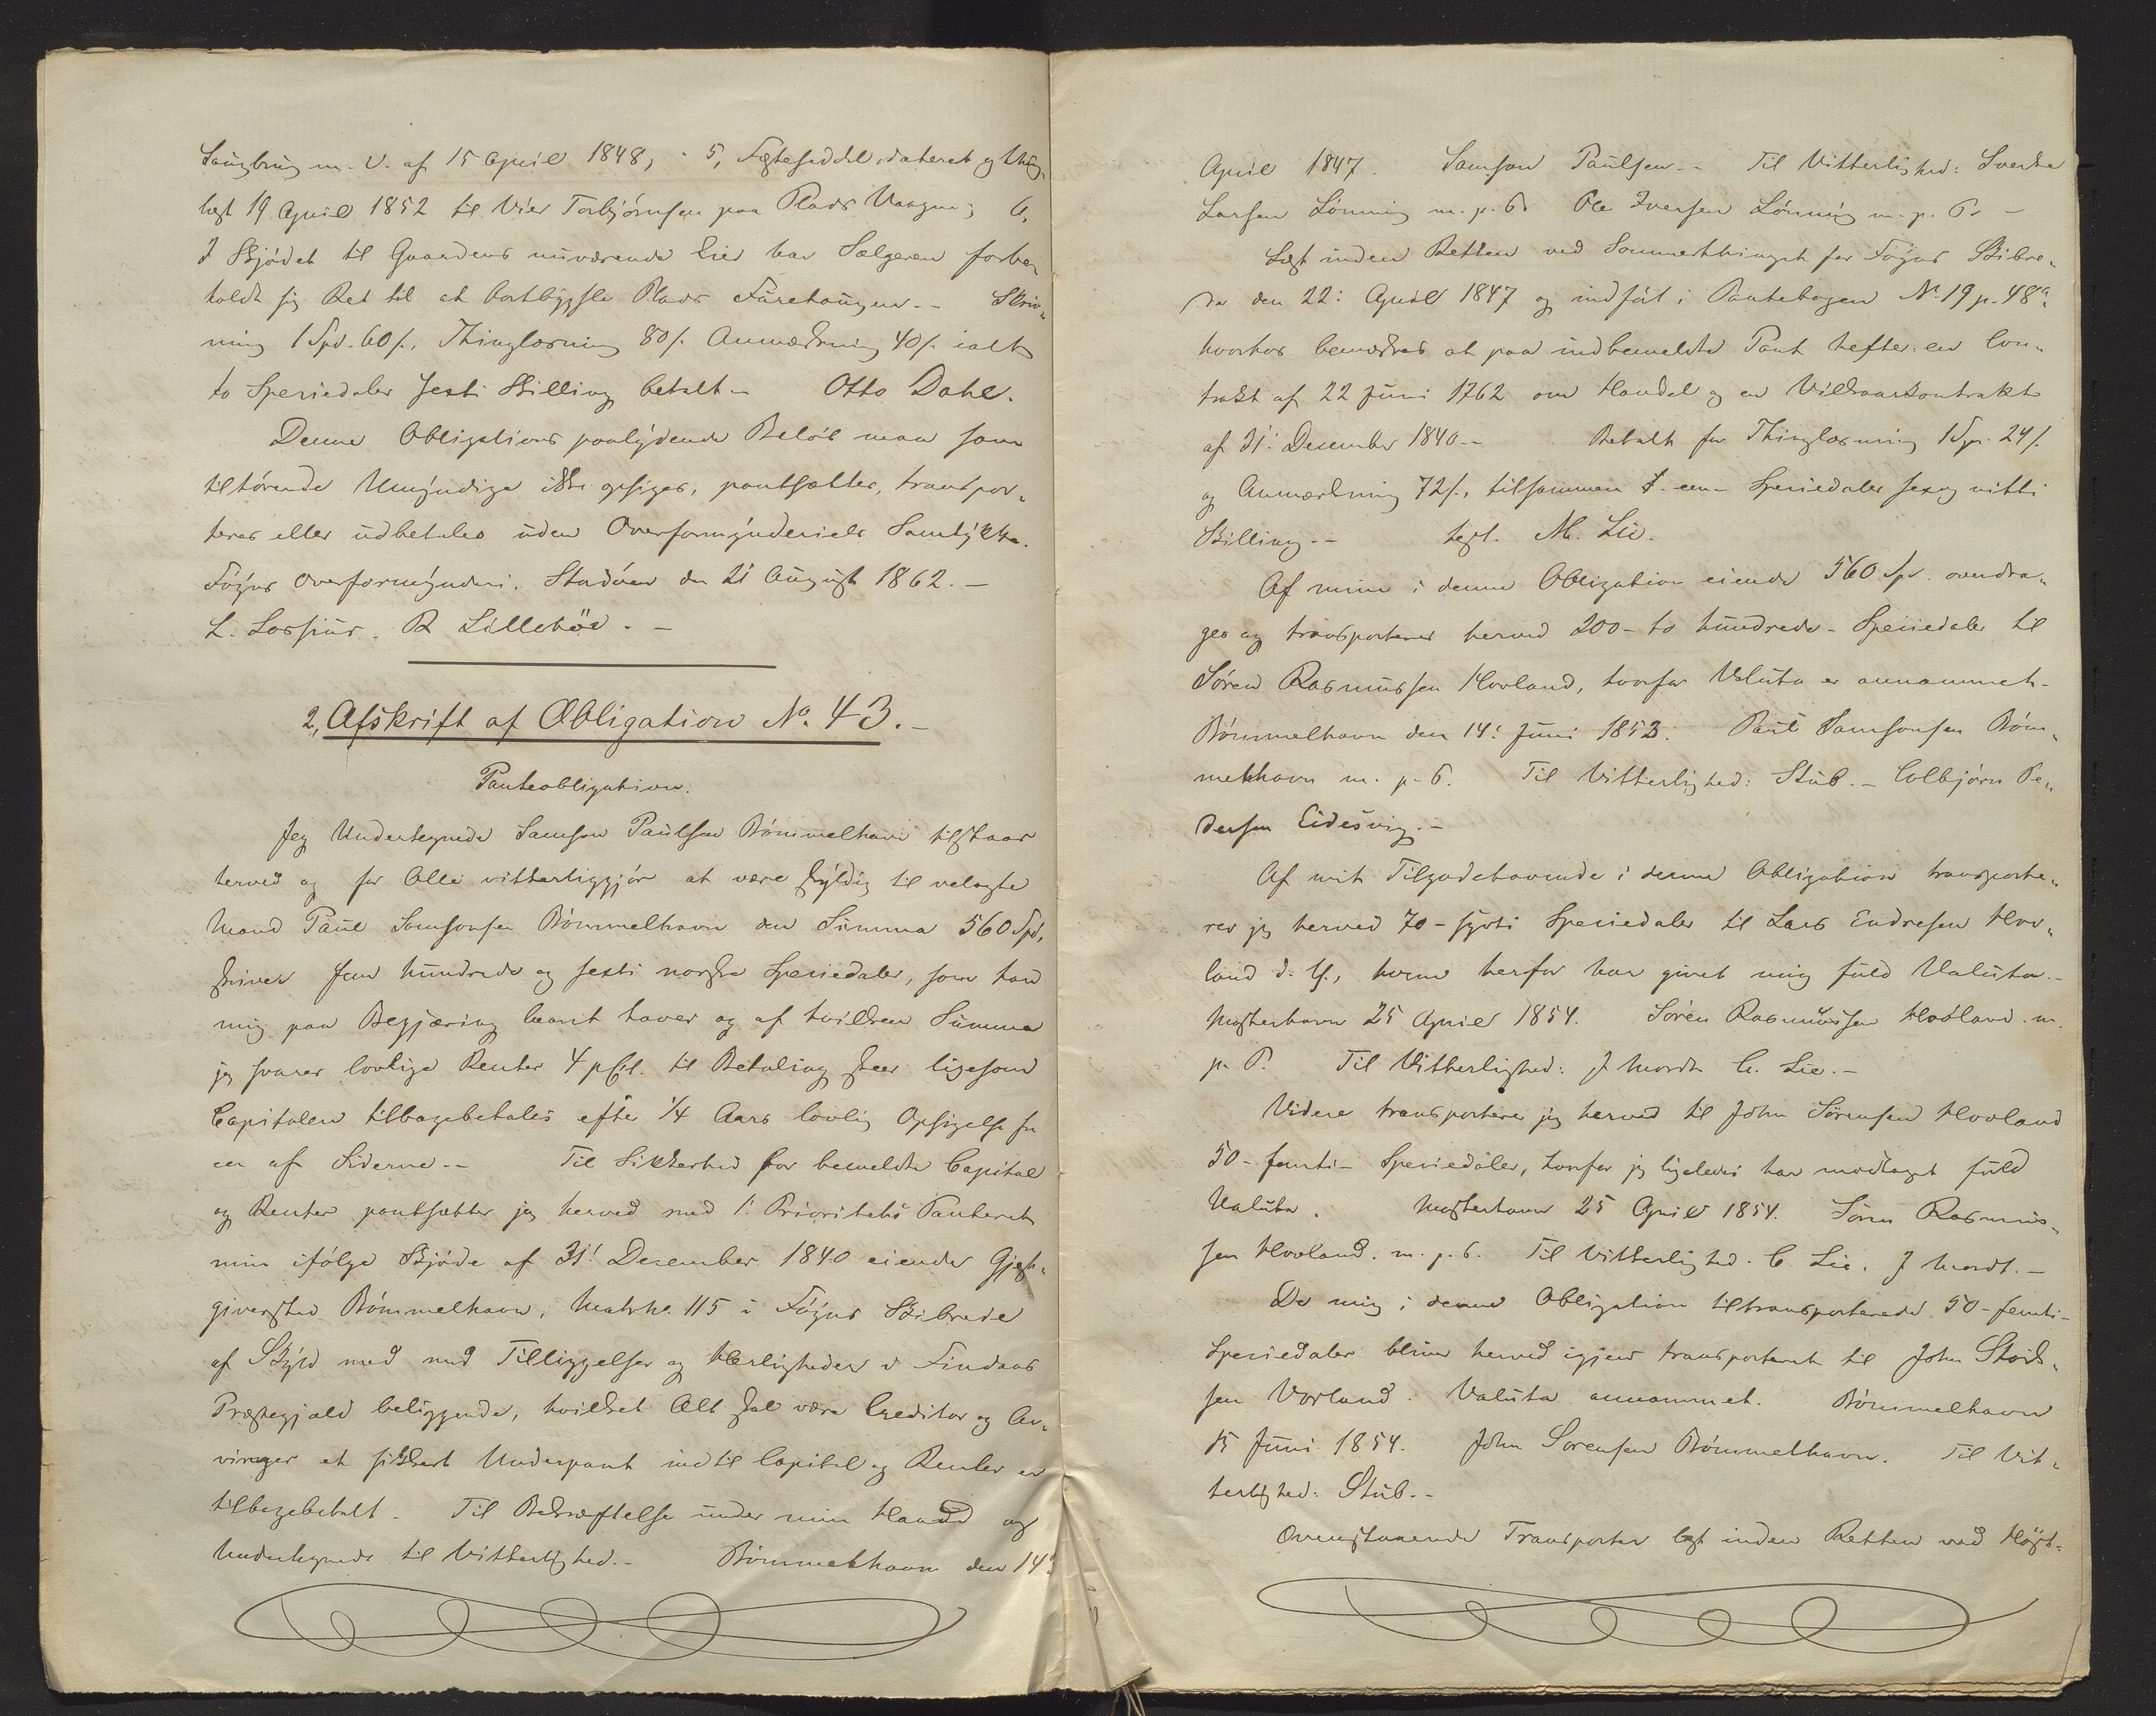 Laugbrug m. V. af 15 April 1848, - 5, Fæsteseddel, dateret og thing-
læst 19 April 1852 til Vier Torbjørnsen paa Plads Vaagen; 6,
I Skjødet til Gaardens nuværende Eier har Sælgeren forbe-
holdt sig Ret til at bortbygsle Plads Furehaugen.- Skriv-
ning 1 Spd. 60 s. Thinglæsning 80 s. Anmærkning 40 s. ialt
to Speciedaler sexti Skilling betalt.- Otto Dahl.
Denne Obligations paalydende Beløb maa som
tilhørende Umyndige ikke opsiges, pantsættes, transpor-
teres eller udbetales uden Overformynderiets Samtykke.
Føyns Overformynderi. Stadøen den 21 August 1862.-
L. Lassius. R Lillebøe.-
2, Afskrift af Obligation No. 43.-
Panteobligation.
Jeg Undertegnede Samson Paulsen Bømmelhavn tilstaar
herved og for Alle vitterliggjør at være skyldig til velagte
Mand Paul Samsonsen Bømmelhavn den Summa 560 Spd,
skriver fem hundrede og sexti norske Speciedaler, som han
mig paa Begjæring laant haver og af hvilken Summa
jeg svarer lovlige Renter 4 pCt. til Betaling skeer ligesom
Capitalen tilbagebetales efter 1/4 Aars lovlig Opsigelse fra
een af Siderne.- Til Sikkerhed for bemeldte Capital
og Renter pantsætter jeg herved med 1: Prioritets Panteret
min ifølge Skjøde af 31: December 1840 eiende Gjæst-
giversted Bømmelhavn, Matr. No. 115 i Føyns Skibrede
af Skyld med med Tilliggelser og Herligheder i Findaas
Præstegjæld beliggende, hvilket Alt skal være Creditor og Ar-
vinger et sikkert Underpant indtil Capital og Renter er
tilbagebetalt. Til Bekræftelse under min Haand og
Undertegnede til Vitterlighed.- Bømmelhavn den 14:
April 1847. Samson Paulsen.- Til Vitterlighed: Sverke
Larsen Lønning m. p. P. Ole Iversen Lønning m. p. P. -
Læst inden Retten ved Sommerthinget for Føyns Skibre-
de den 22: April 1847 og indført i Pantebogen No. 19 p. 48a:
hvorhos bemærkes at paa indbemeldte Pant hefter en Con-
trakt af 22 Juni 1762 om Handel og en Vilkaarskontrakt
af 31: December 1840.- Betalt for Thinglæsning 1 Sp. 24 s.
og Anmærkning 72 s., tilsammen 1.- een - Speciedaler sexognitti
Skilling.- test. M. Lie.
Af mine i denne Obligation eiende 560 Spd. overdra-
ges og transporteres herved 200 - to hundrede - Speciedaler til
Søren Rasmussen Hovland, hvorfor Valuta er annammet.
Bømmelhavn den 14: Juni 1853. Paul Samsonsen Bøm-
melhavn m. p. P. Til Vitterlighed: Stub.- Colbjørn Pe-
dersen Eidesvig.-
Af mit Tilgodehavende i denne Obligation transporte-
rer jeg herved 70 - sytti Speciedaler til Lars Endresen Hov-
land d. Y., hvem herfor har givet mig fuld Valuta.-
Mosterhavn 25 April 1854. Søren Rasmussen Hovland. m.
p. P. Til Vitterlighed: J Mordt. C. Lie.-
Videre transporterer jeg herved til John Sørensen Hovland
50 - femti - Speciedaler, hvorfor jeg ligeledes har modtaget fuld
Valuta. Mosterhavn 25 April 1854. Søren Rasmus-
sen Hovland. m. p. P. Til Vitterlighed. C. Lie. J Mordt.-
De mig i denne Obligation tiltransporterede 50 - femti-
Speciedaler bliver herved igjen transporteret til John
sen Vorland. Valuta annammet. Bømmelhavn
15 Juni 1854. John Sørensen Bømmelhavn. Til Vit-
terlighed: Stub.-
Ovenstaaende Transporter læst inden Retten ved Høst-